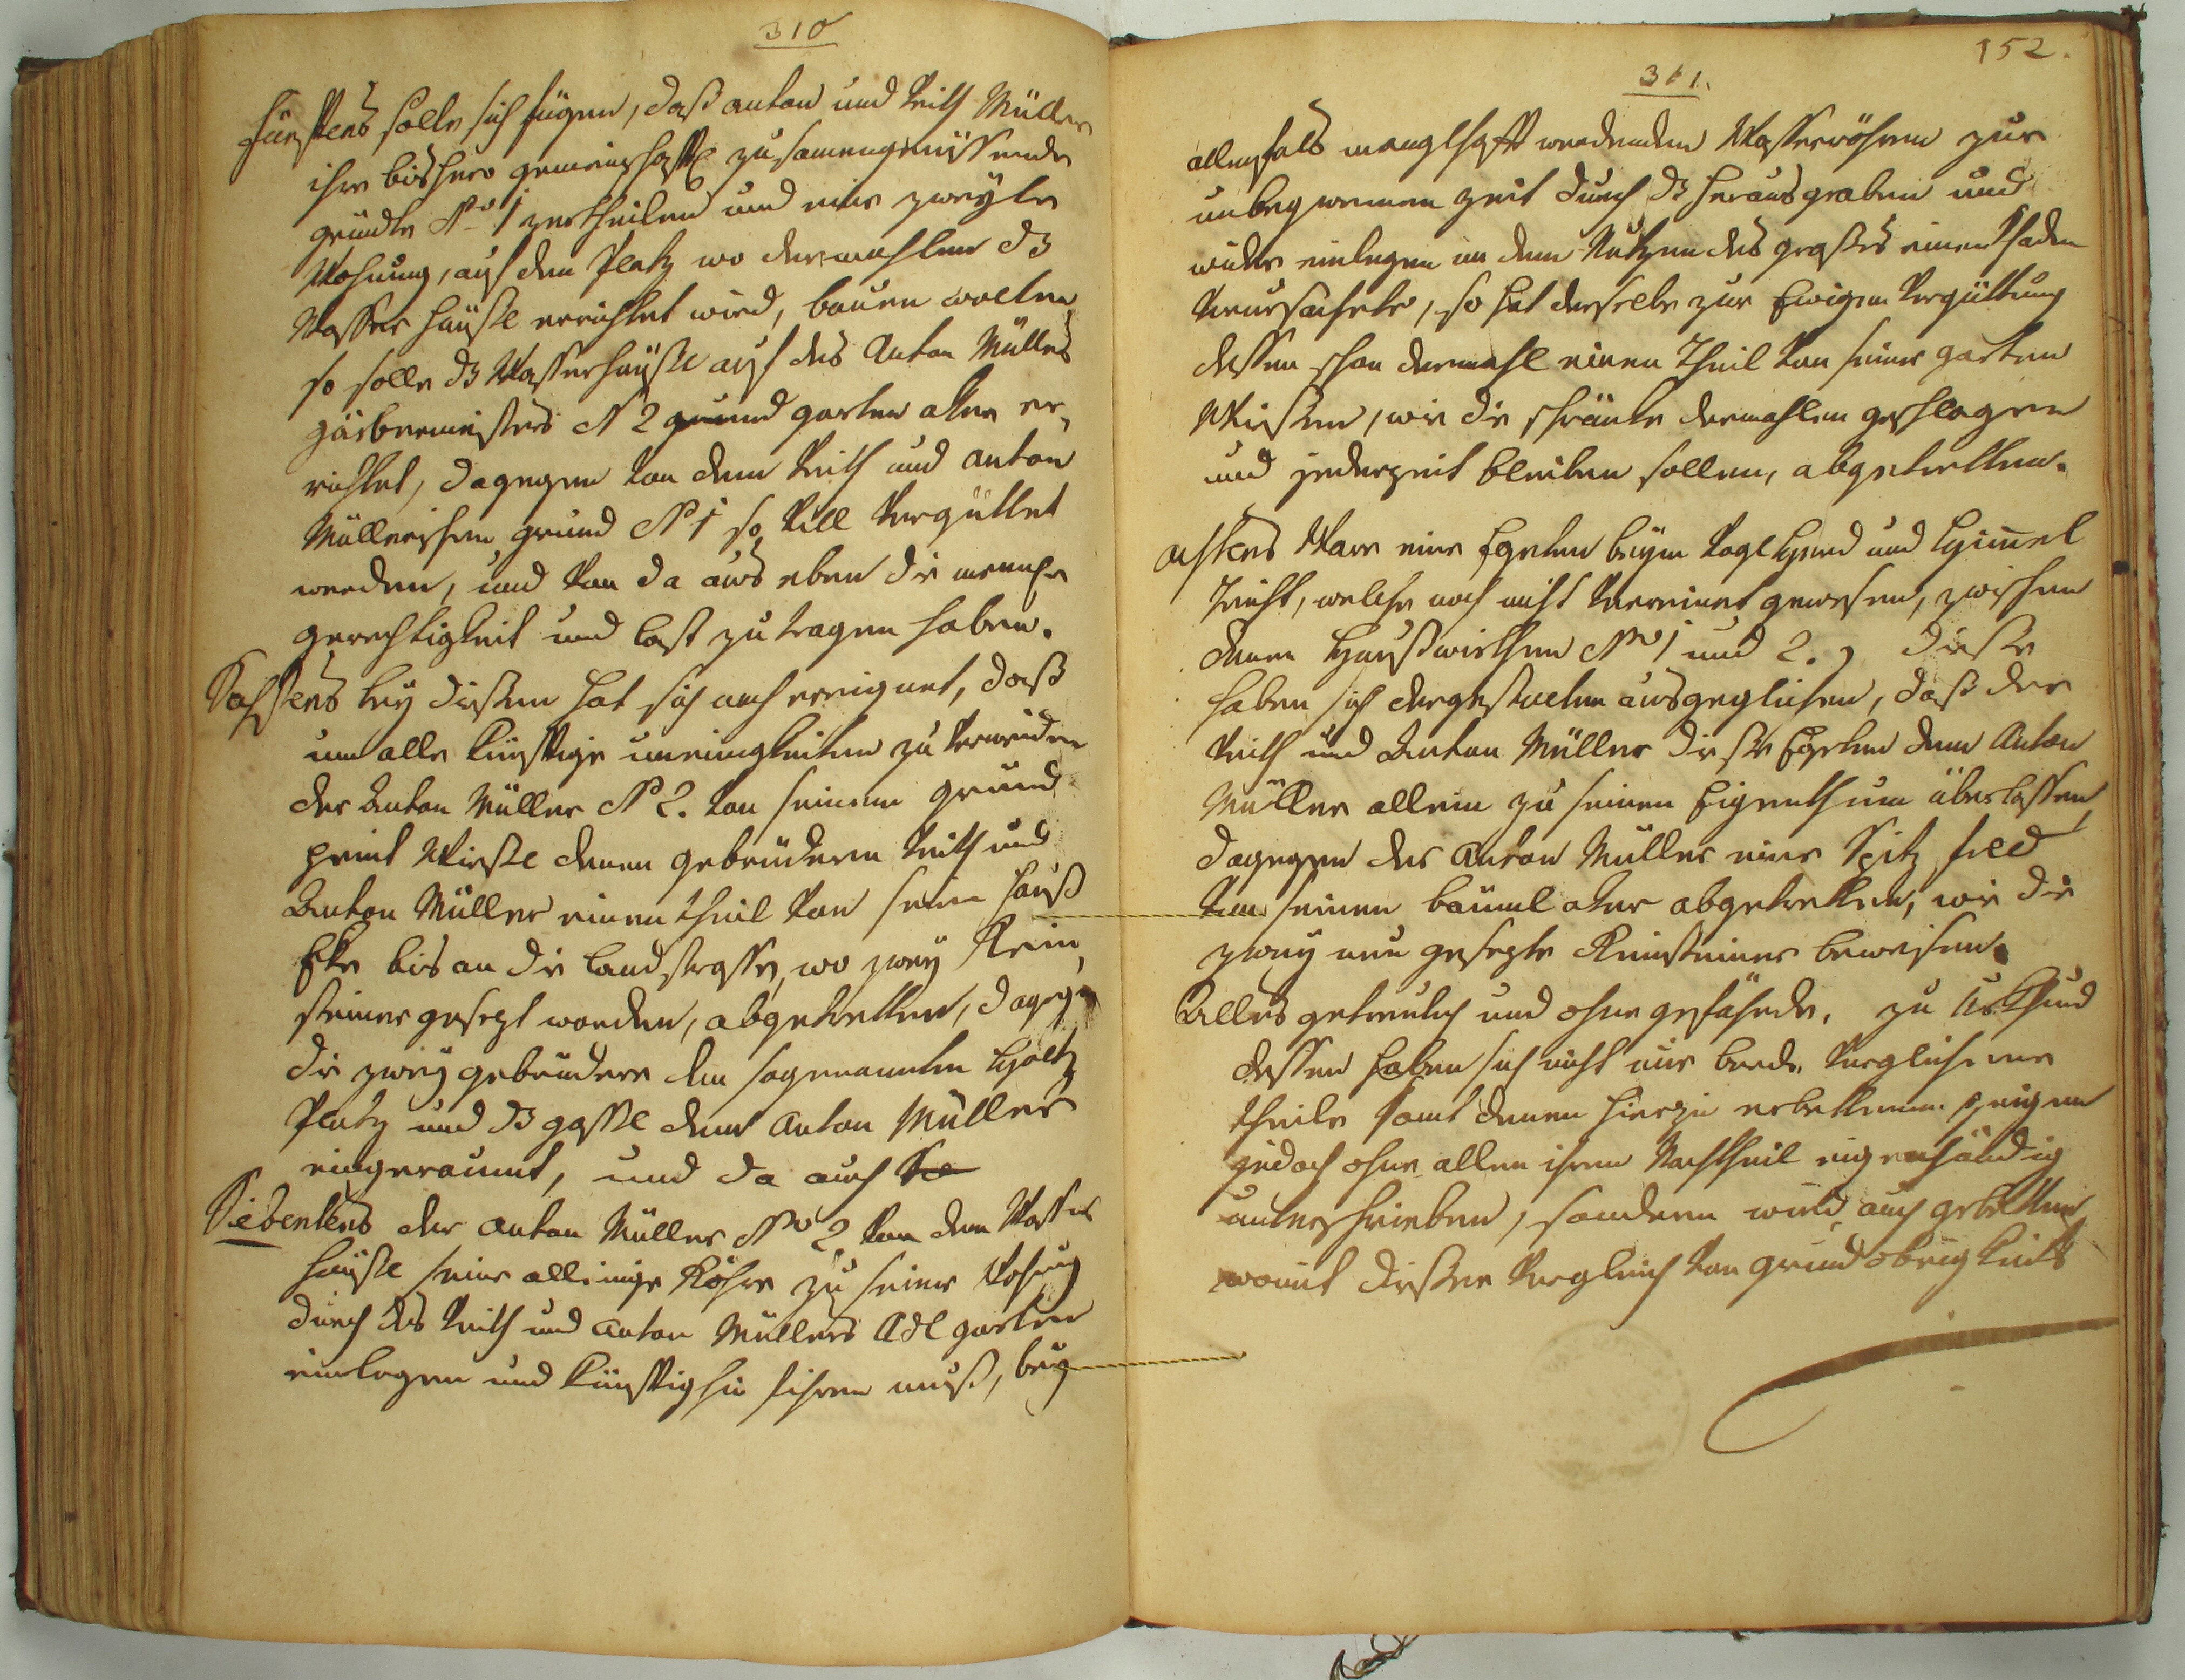 310
Fünftens solle sich fügen, daß Anton und Veith Müller
ihre bishero gemeinschaftl zusamengenüssende
gründte No 1 zertheilen und eine zweyte
Wohnung, auf den Platz wo dermahlen ds
Wasser häusle errichtet wird, bauen wolten
so solle ds Wasserhäusle auf des Anton Müllers
gärbermeisters N 2 grund garten aker er,
richtet, dagegen von dem Veith und Anton
Müllerischen grund N 1 so vill vergüttet
werden, und von da aus eben die
gerechtigkeit und last zu tragen haben.
Sechstens bey diesem hat sich auch ereignet, daß
um alle künftige uneinigkeiten zu vermeiden
der Anton Müller N 2. von seinem grund
peint Wiesle denen gebrüdern Veith und
Anton Müller einen theil von seim Hauß
Eke bis an die landstrasse, wo zwey Rein,
steiner gesezt worden, abgetretten, dagegen
die zwey gebrüdere den sogenannten Holtz
Platz und ds gassl dem Anton Müller
eingeraumt, und da auch
Siebentens der Anton Müller No 2 von dem Wasser
häusle seine alleinige Röhre zu seiner Wohung
durch des Veith und Anton Müllers garten
einlegen und künftighin führen muß, bey
152.
311.
allenfals manglhafft werdenden Wasserröhren zur
unbequemen zeit durch ds herausgraben und
wider einlegen an dem Nutzen des grases einen schaden
verursachete, so hat derselbe zur Ewigen vergüttung
dessen schon dermahl einen theil von seiner garten
Wiesen, wie die schränke dermahlen geschlagen
und jederzeit bleiben sollen, abgetretten.
Achtens Ware eine Egeten beym Vogl Herd und Himel
reicht, welche noch nicht verreinet gewesen, zwischen
denen Haußwirthen No 1 und 2. diese
haben sich dergestalten ausgeglichen, daß der
Veith und Anton Müller diese Egeten dem Anton
Müller allein zu seinen Eigenthum überlassen
dagegen der Anton Müller eine Spitz feld
von seinen bäuml aker abgetretten, wie die
zwey neu gesezte Reinsteiner beweisen.
Alles getreulich und ohne gefährde. zu Urkhund
dessen haben sich nicht nur beede verglichene
theile samt denen hierzu erbettenen zeigen
jedoch ohne allen ihren Nachtheil eigenhändig
unterschrieben, sondern wird auch gebetten
womit dieser vergleich von grundobrigkeits